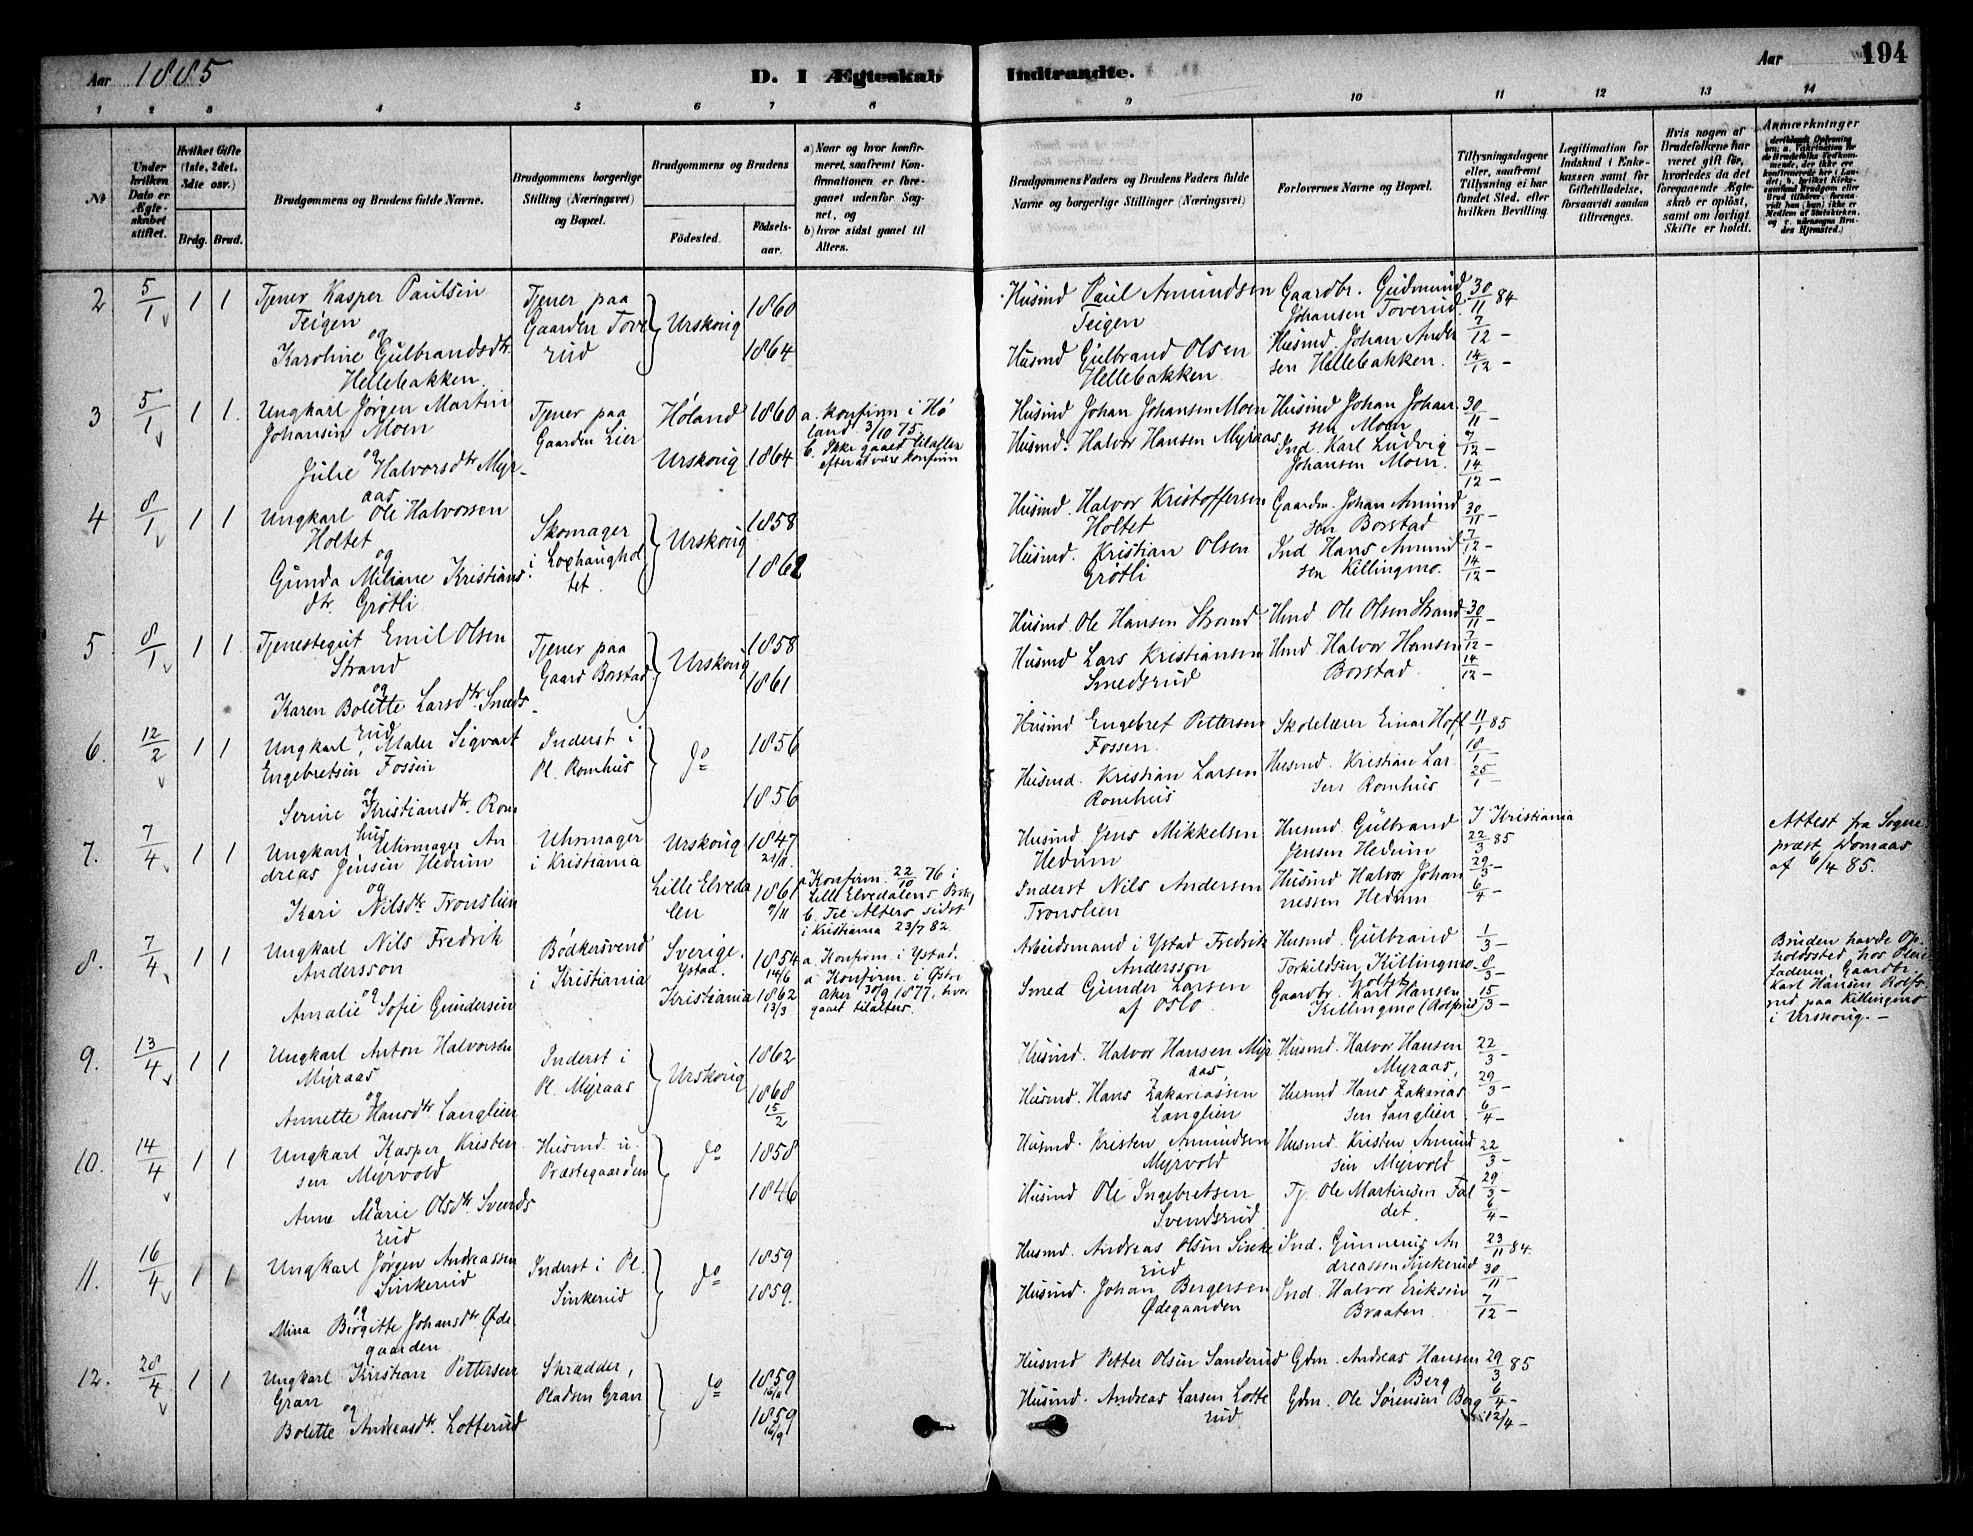 Aar 1885
D. I Ægteskab Indtraadte.
Aar 194
1 2 3 4 5 6 7 8 9 10 11 12 13 14
No
Under hvilken Dato er Ægteskabet stiftet.
Hvilket Gifte (1ste, 2det, 3die osv.)
Brdg. Brud.
Brudgommens og Brudens fulde Navne.
Brudgommens borgerlige Stilling (Næringsvei) og Bopæl.
Brudgommens og Brudens
Födested. Födselsaar.
a) Naar og hvor konfirmeret, saafremt Konfirmationen er foregaaet udenfor Sognet, og
b) hvor sidst gaaet til Alters.
Brudgommens Faders og Brudens Faders fulde Navne og borgerlige Stillinger (Næringsvei)
Forlovernes Navne og Bopæl.
Tillysningsdagene eller, saafremt Tillysning ei har fundet Sted, efter hvilken Bevilling.
Legitimation for Indskud i Enkekassen samt for Giftetilladelse, forsaavidt saadan tiltrænges.
Hvis nogen af Brudefolkene har været gift før, hvorledes da det foregaaende Ægteskab er opløst, samt om lovligt Skifte er holdt.
Anmærkninger
2 5/1 1 1
Tjener Kasper Paulsen
Teigen
og
Karoline Gulbrandsdtr.
Hellebakken.
Tjener paa
Gaarden Tove
rud
Urskoug
1860
1864
Husmd Paul Amundsen
Teigen
Husmd Gulbrand Olsen
Hellebakken
Gaardbr. Gudmund
Johansen Toverud.
Husmd. Johan Ander
sen Hellebakken.
30/11 84
7/12 -
14/12 -
3 5/1 1 1.
Ungkarl Jørgen Martin
Johansen Moen
og
Julie Halvorsdtr Myr-
aas
Tjener paa
Gaarden Lier
Høland
Urskoug
1860
1864
a. Konfirm i Hø
land 3/10 75.
b. Ikke gaaet tilalter
efter at være konfirm
Husmd Johan Johansen Moen
Husmd. Halvor Hansen Myraas
Husmd Johan Johan
sen Moen
Ind. Karl Ludvig
Johansen Moen.
30/11 -
7/12 -
14/12 -
4 8/1 1 1
Ungkarl Ole Halvorsen
Holtet
og
Gunda Miliane Kristians
dtr. Grötli
Skomager
i Loxhaughol
tet.
Urskoug
1858
1862
Husmd. Halvor Kristoffersen
Holtet
Husmd. Kristian Olsen
Grötli
Gaardm. Johan Amund
sen Borstad
Ind Hans Amund
sen Killingmo.
30/11 -
7/12 -
14/12 -
5 8/1 1 1.
Tjenestegut Emil Olsen
Strand
og
Karen Bolette Larsdtr. Smeds-
rud
Tjener paa
Gaard Borstad
Urskoug
1858
1861
Husmd Ole Hansen Strand
Husmd Lars Kristiansen
Smedsrud
Hmd Ole Olsen Strand
Hmd. Halvor Hansen
Borstad.
30/11 -
7/12 -
14/12 -
6. 12/2 1 1
Ungkarl, Maler Sigvart
Engebretsen Fossen
og
Serine Kristiansdtr. Rom
hus
Inderst i
Pl. Romhus
do
1856
1856
Husmd Engebret Pettersen
Fossen.
Husmd. Kristian Larsen
Romhus
Skolelærer Einar Hoff
Husmd. Kristian Lar
sen Romhus
11/1 85
18/1 -
25/1
7. 7/4 1 1
Ungkarl Uhrmager An
dreas Jensen Hedum
og
Kari Nilsdtr Tronslien
Uhrmager
i Kristiania
Urskoug
Lille Elveda
len
1847
21/11
1861
7/11
a Konfirm. 22/10 76 i
Lille Elvedalens Prstg,
b. Til Alters sidst
i Kristiania 23/7 82.
Husmd Jens Mikkelsen
Hedum
Inderst Nils Andersen
Tronslien
Husmd. Gulbrand
Jensen Hedum
Husmd Halvor Johan
nessen Hedum
I Kristiania
22/3 85
29/3 -
6/4 -
Attest fra Sogne
præst Domaas
af 6/4 85.
8. 7/4 1 1
Ungkarl Nils Fredrik
Andersson
og
Amalie Sofie Gundersen
Bödkersvend
i Kristiania
Sverige.
Ystad.
Kristiania
1854
14/6
1862
13/3
a. Konfirm i Ystad.
a Konfirm. i Østre
Aker 30/9 1877, hvor
gaaet tilalters.
Arbeidsmand i Ystad Fredrik
Andersson
Smed Gunder Larsen
af Oslo
Husmd. Gulbrand
Torkildsen Killingmo
holtet
Gaardbr. Karl Hansen
Killingmo (Rolfsrud)
1/3 -
8/3 -
15/3 -
Bruden havde Op
holdssted hos Pleie
faderen, Gaardbr.
Karl Hansen Rolfs
rud paa Killingmo
i Urskoug. -
9. 13/4 1 1
Ungkarl Anton Halvorsen
Myraas
og
Annette Hansdtr Langlien
Inderst i
Pl. Myraas
Urskoug
1862
1868
15/2
Husmd. Halvor Hansen Myr
aas,
Husmd. Hans Zakariassen
Langlien
Husmd. Halvor Hansen
Myraas,
Husmd Hans Zakarias
sen Langlien.
22/3 -
29/3 -
6/4 -
10. 14/4 1 1
Ungkarl Kasper Kristen
sen Myrvold
og
Anne Marie Olsdtr. Svends
rud
Husmd. u.
Præstegaarden
do
1858
1846
Husmd. Kristen Amundsen
Myrvold
Husmd Ole Ingebretsen
Svendsrud
Husmd. Kristen Amund
sen Myrvold
Tj. Ole Martinsen Fal
det.
22/3 -
29/3 -
6/4 -
11. 16/4 1 1
Ungkarl Jørgen Andreassen
Sinkerud
og
Mina Birgitte Johansdtr. Øde-
gaarden.
Inderst i Pl.
Sinkerud
do
1859
1859.
Husmd. Andreas Olsen Sinke
rud
Husmd. Johan Bergersen
Ødegaarden
Ind. Gunnerius An
dreassen Sinkerud
Ind. Halvor Eriksen
Braaten
23/11 84.
30/11 -
7/12 -
12. 28/4 1 1
Ungkarl Kristian Pettersen
Gran
og
Bolette Andreasdtr. Lotterud
Skrædder,
Pladsen Gran
do
1859
1859
16/9
Husmd Petter Olsen Sanderud
Husmd. Andreas Larsen Lotte
rud
Gdm. Andreas Hansen
Berg
Gdm. Ole Sørensen Berg
29/3 85
6/4 -
12/4 -